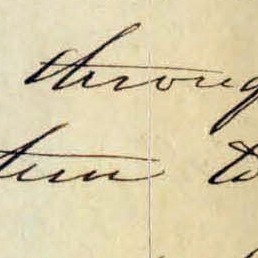 throug
turn to